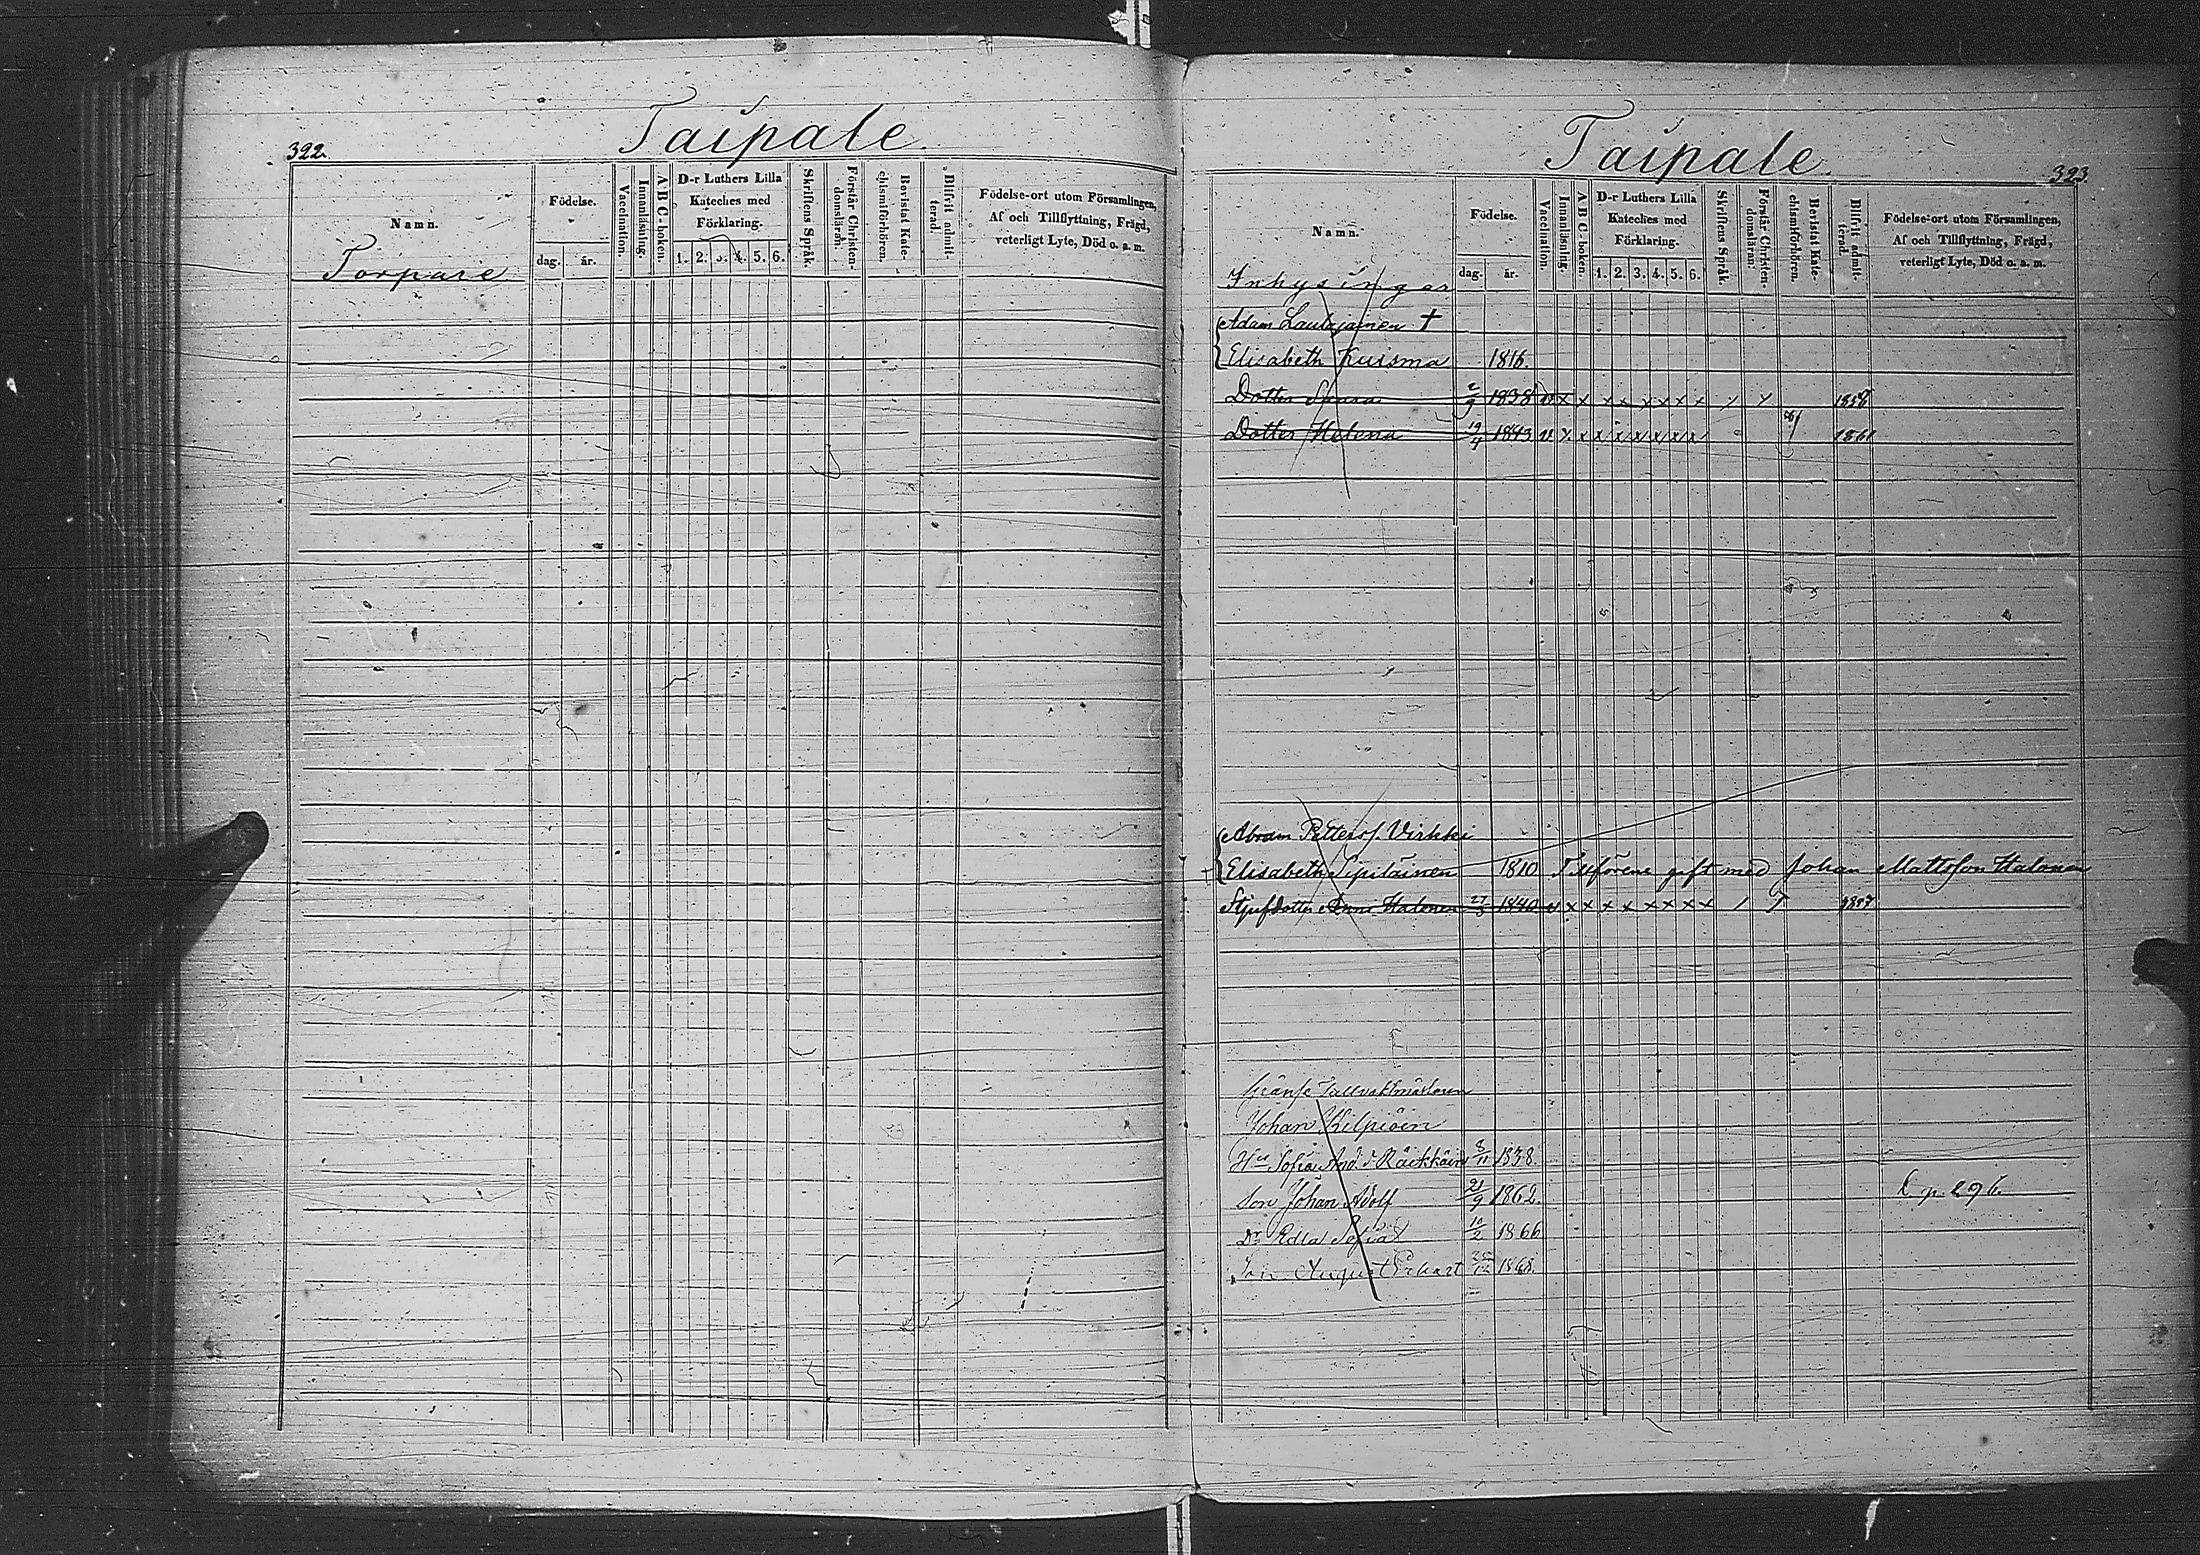 322.
Taipale.
Namn.
Födelse.
dag. år.
Vaccination.
Innanläsning.
A B C-boken.
D-r Luthers Lilla
Kateches med
Förklaring.
1. 2. 3. 4. 5. 6.
Skriftens Språk.
Förstår Christen-
domsläran.
Bevistat Kate-
chismiförhören.
Blifvit admit-
terad.
Födelse-ort utom Församlingen,
Af och Tillflyttning, Frägd,
veterligt Lyte, Död o. a. m.
Torpare
Taipale.
323.
Namn.
Födelse.
dag. år.
Vaccination.
Innanläsning.
A B C-boken.
D-r Luthers Lilla
Kateches med
Förklaring.
1. 2. 3. 4. 5. 6.
Skriftens Språk.
Förstår Christen-
domsläran.
Bevistat Kate-
chismiförhören.
Blifvit admit-
terad.
Födelse-ort utom Församlingen,
Af och Tillflyttning, Frägd,
veterligt Lyte, Död o. a. m.
Inhysingar
Adam Laukjainen †
Elisabeth Kuisma 1816.
Dotter 2/9 1838 v x x x x x x x x x 1858
Dotter Helena 19/4 1843 v x x x x x x x x 1861
Abram Petterss. Virkki
Elisabeth Sipiläinen 1810 Tillförene gift med Johan Mattsson Halonen
Styfdotter Anni Halonen 27/3 1840 v x x x x x x x x
Johan Kilpiäin
Hu Sofia And. d. Räikkäin 8/11 1838.
Son Johan Adolf 21/9 1862.
Dr Edla Sofia 10/2 1866
Son August 1868.
p. 296.